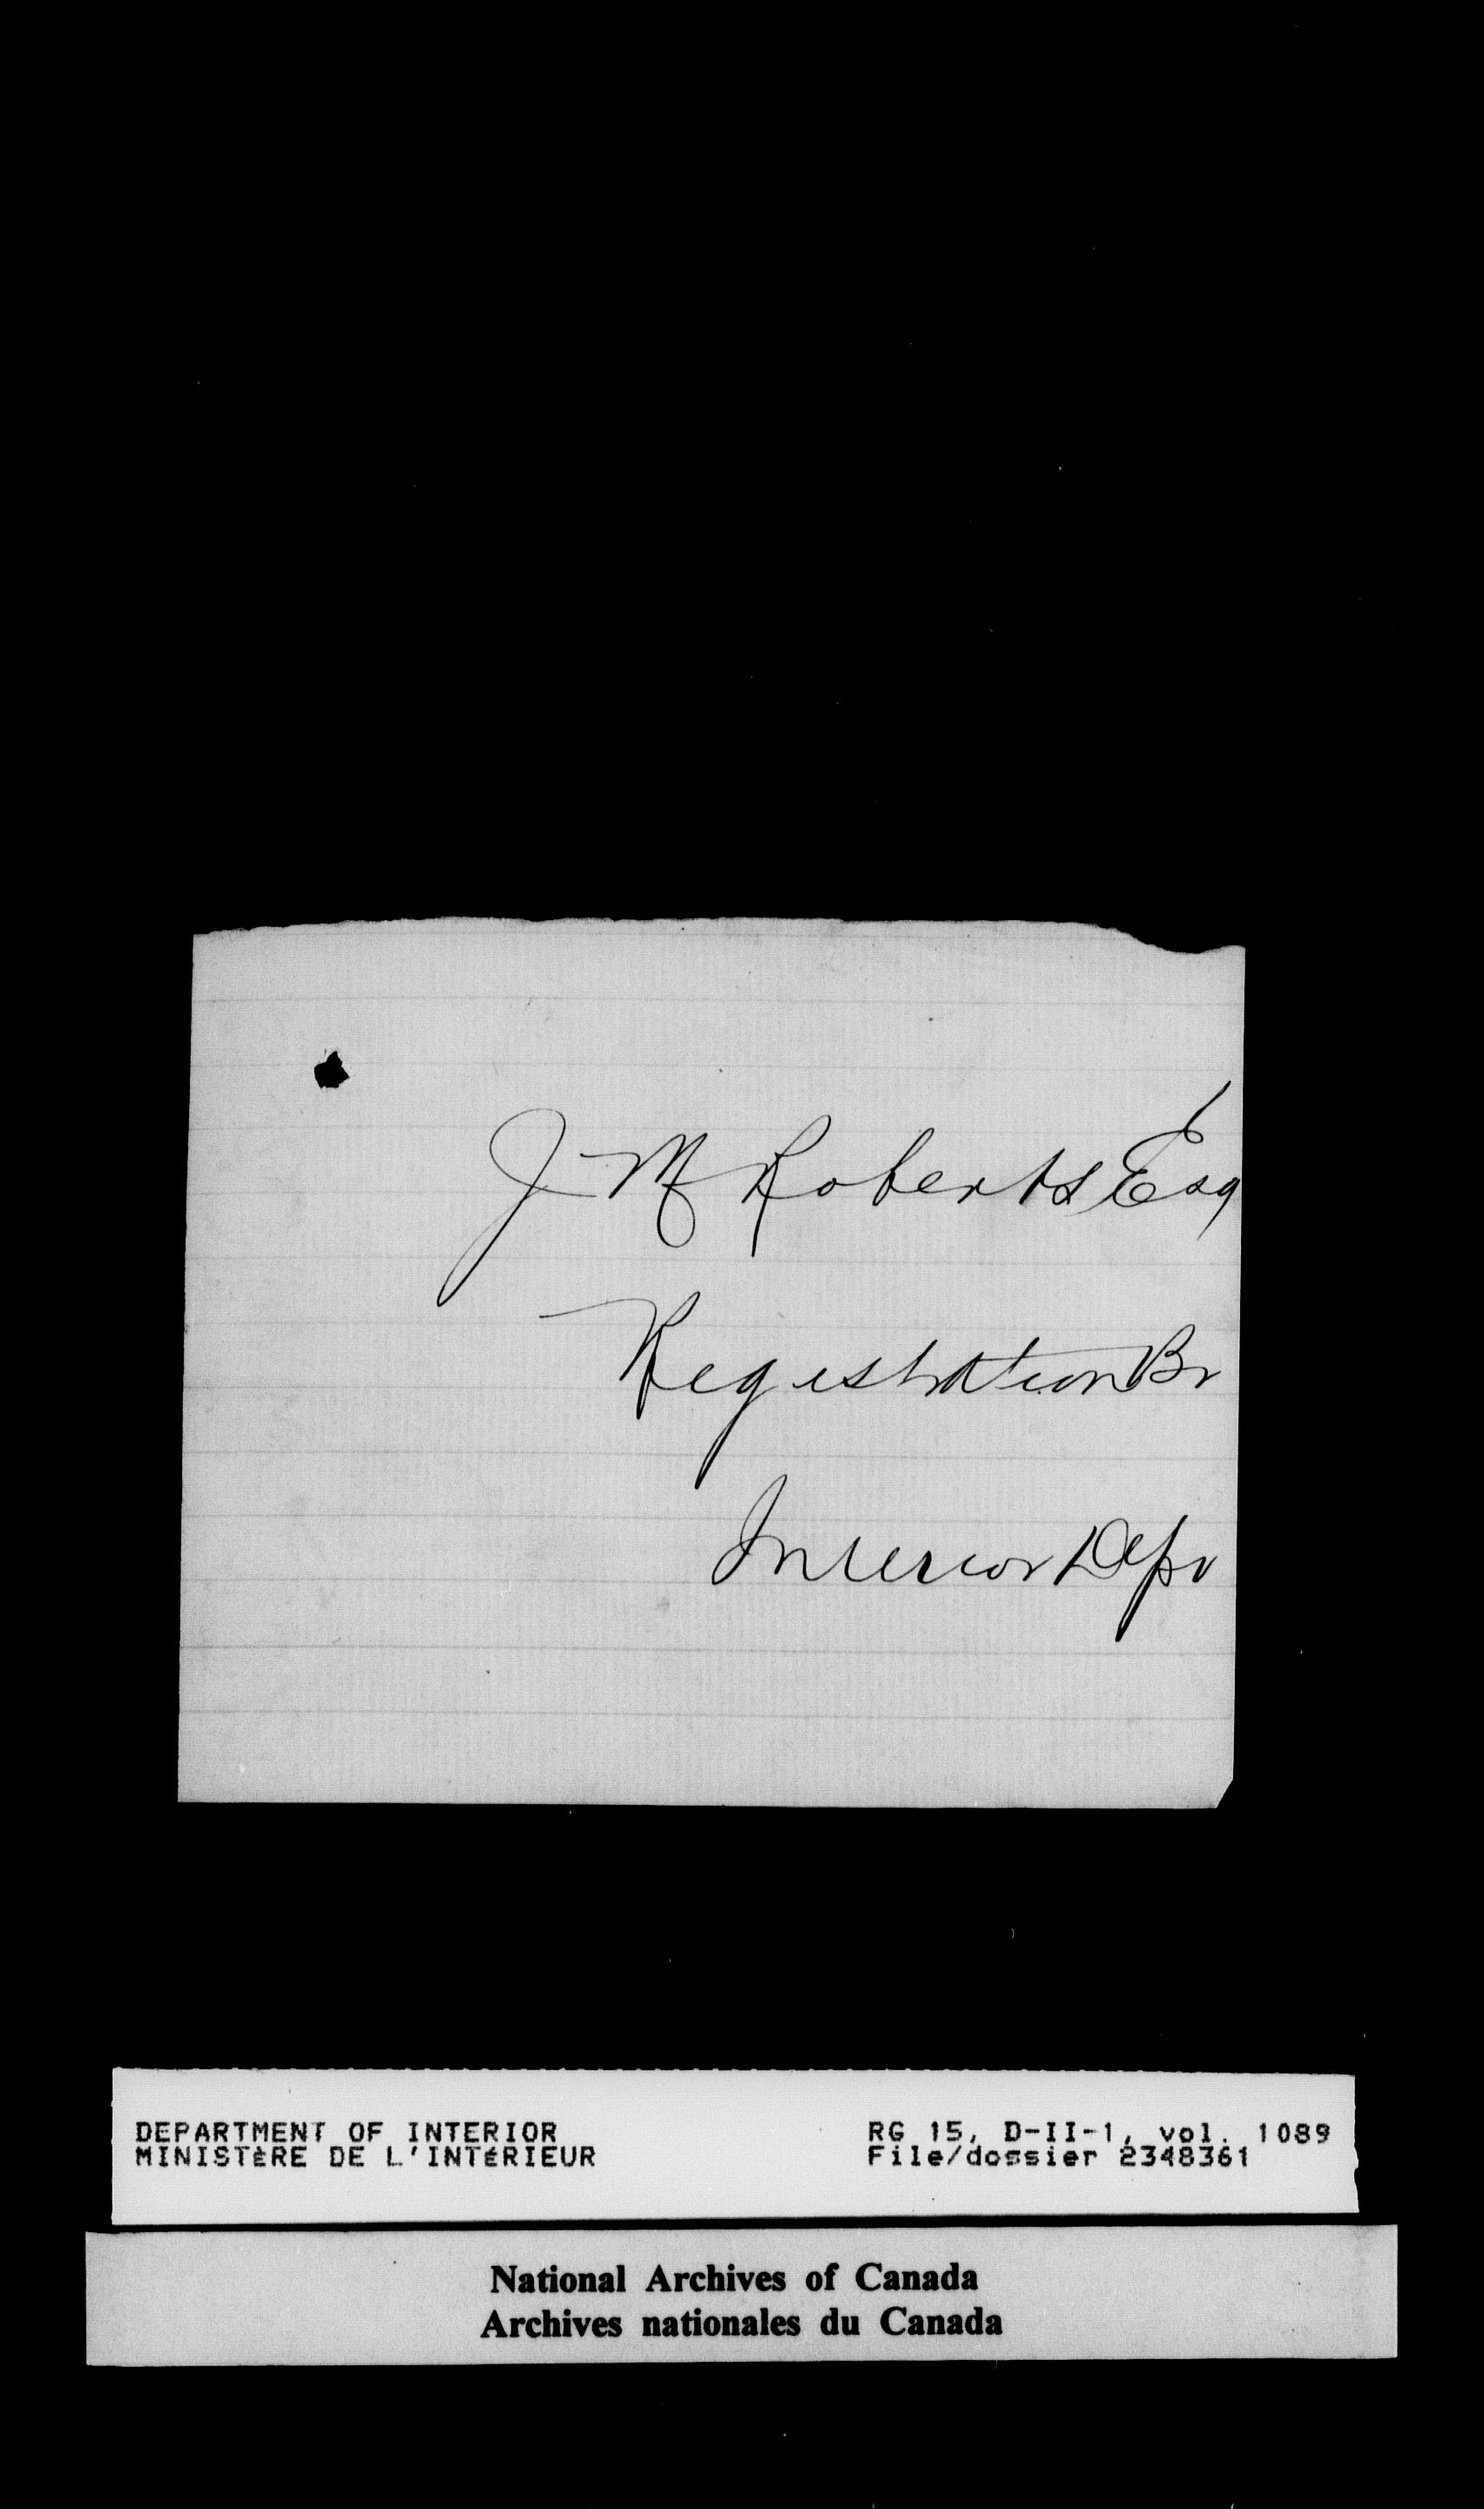 J M Roberts Esq
Registration Br
Interior Dept
DEPARTMENT OF INTERIOR
MINISTÈRE DE L'INTÉRIEUR
RG 15, D-II-1, vol. 1089
File/dossier 2348361
National Archives of Canada
Archives nationales du Canada